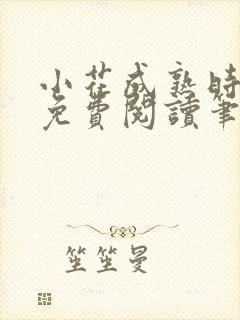 小花成熟时
免費閱讀筆
笙笙曼